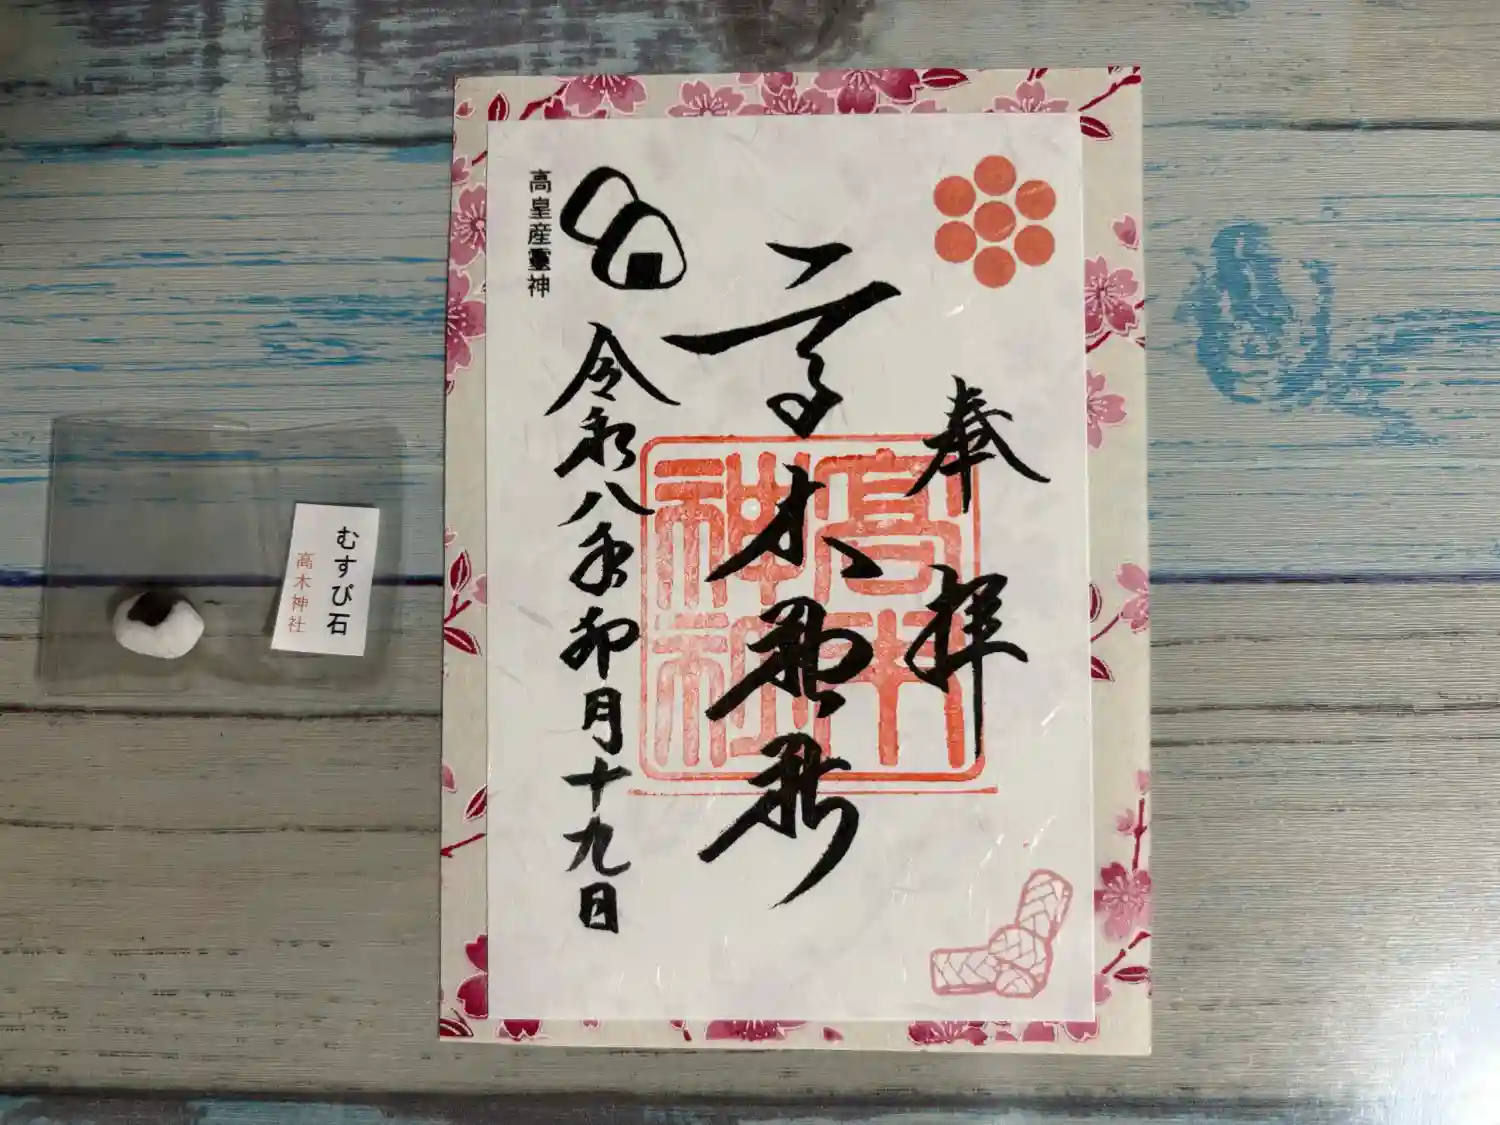 奉拝
高木神社
高木神社
高皇産霊神
令和八年卯月十九日
むすび石
高木神社